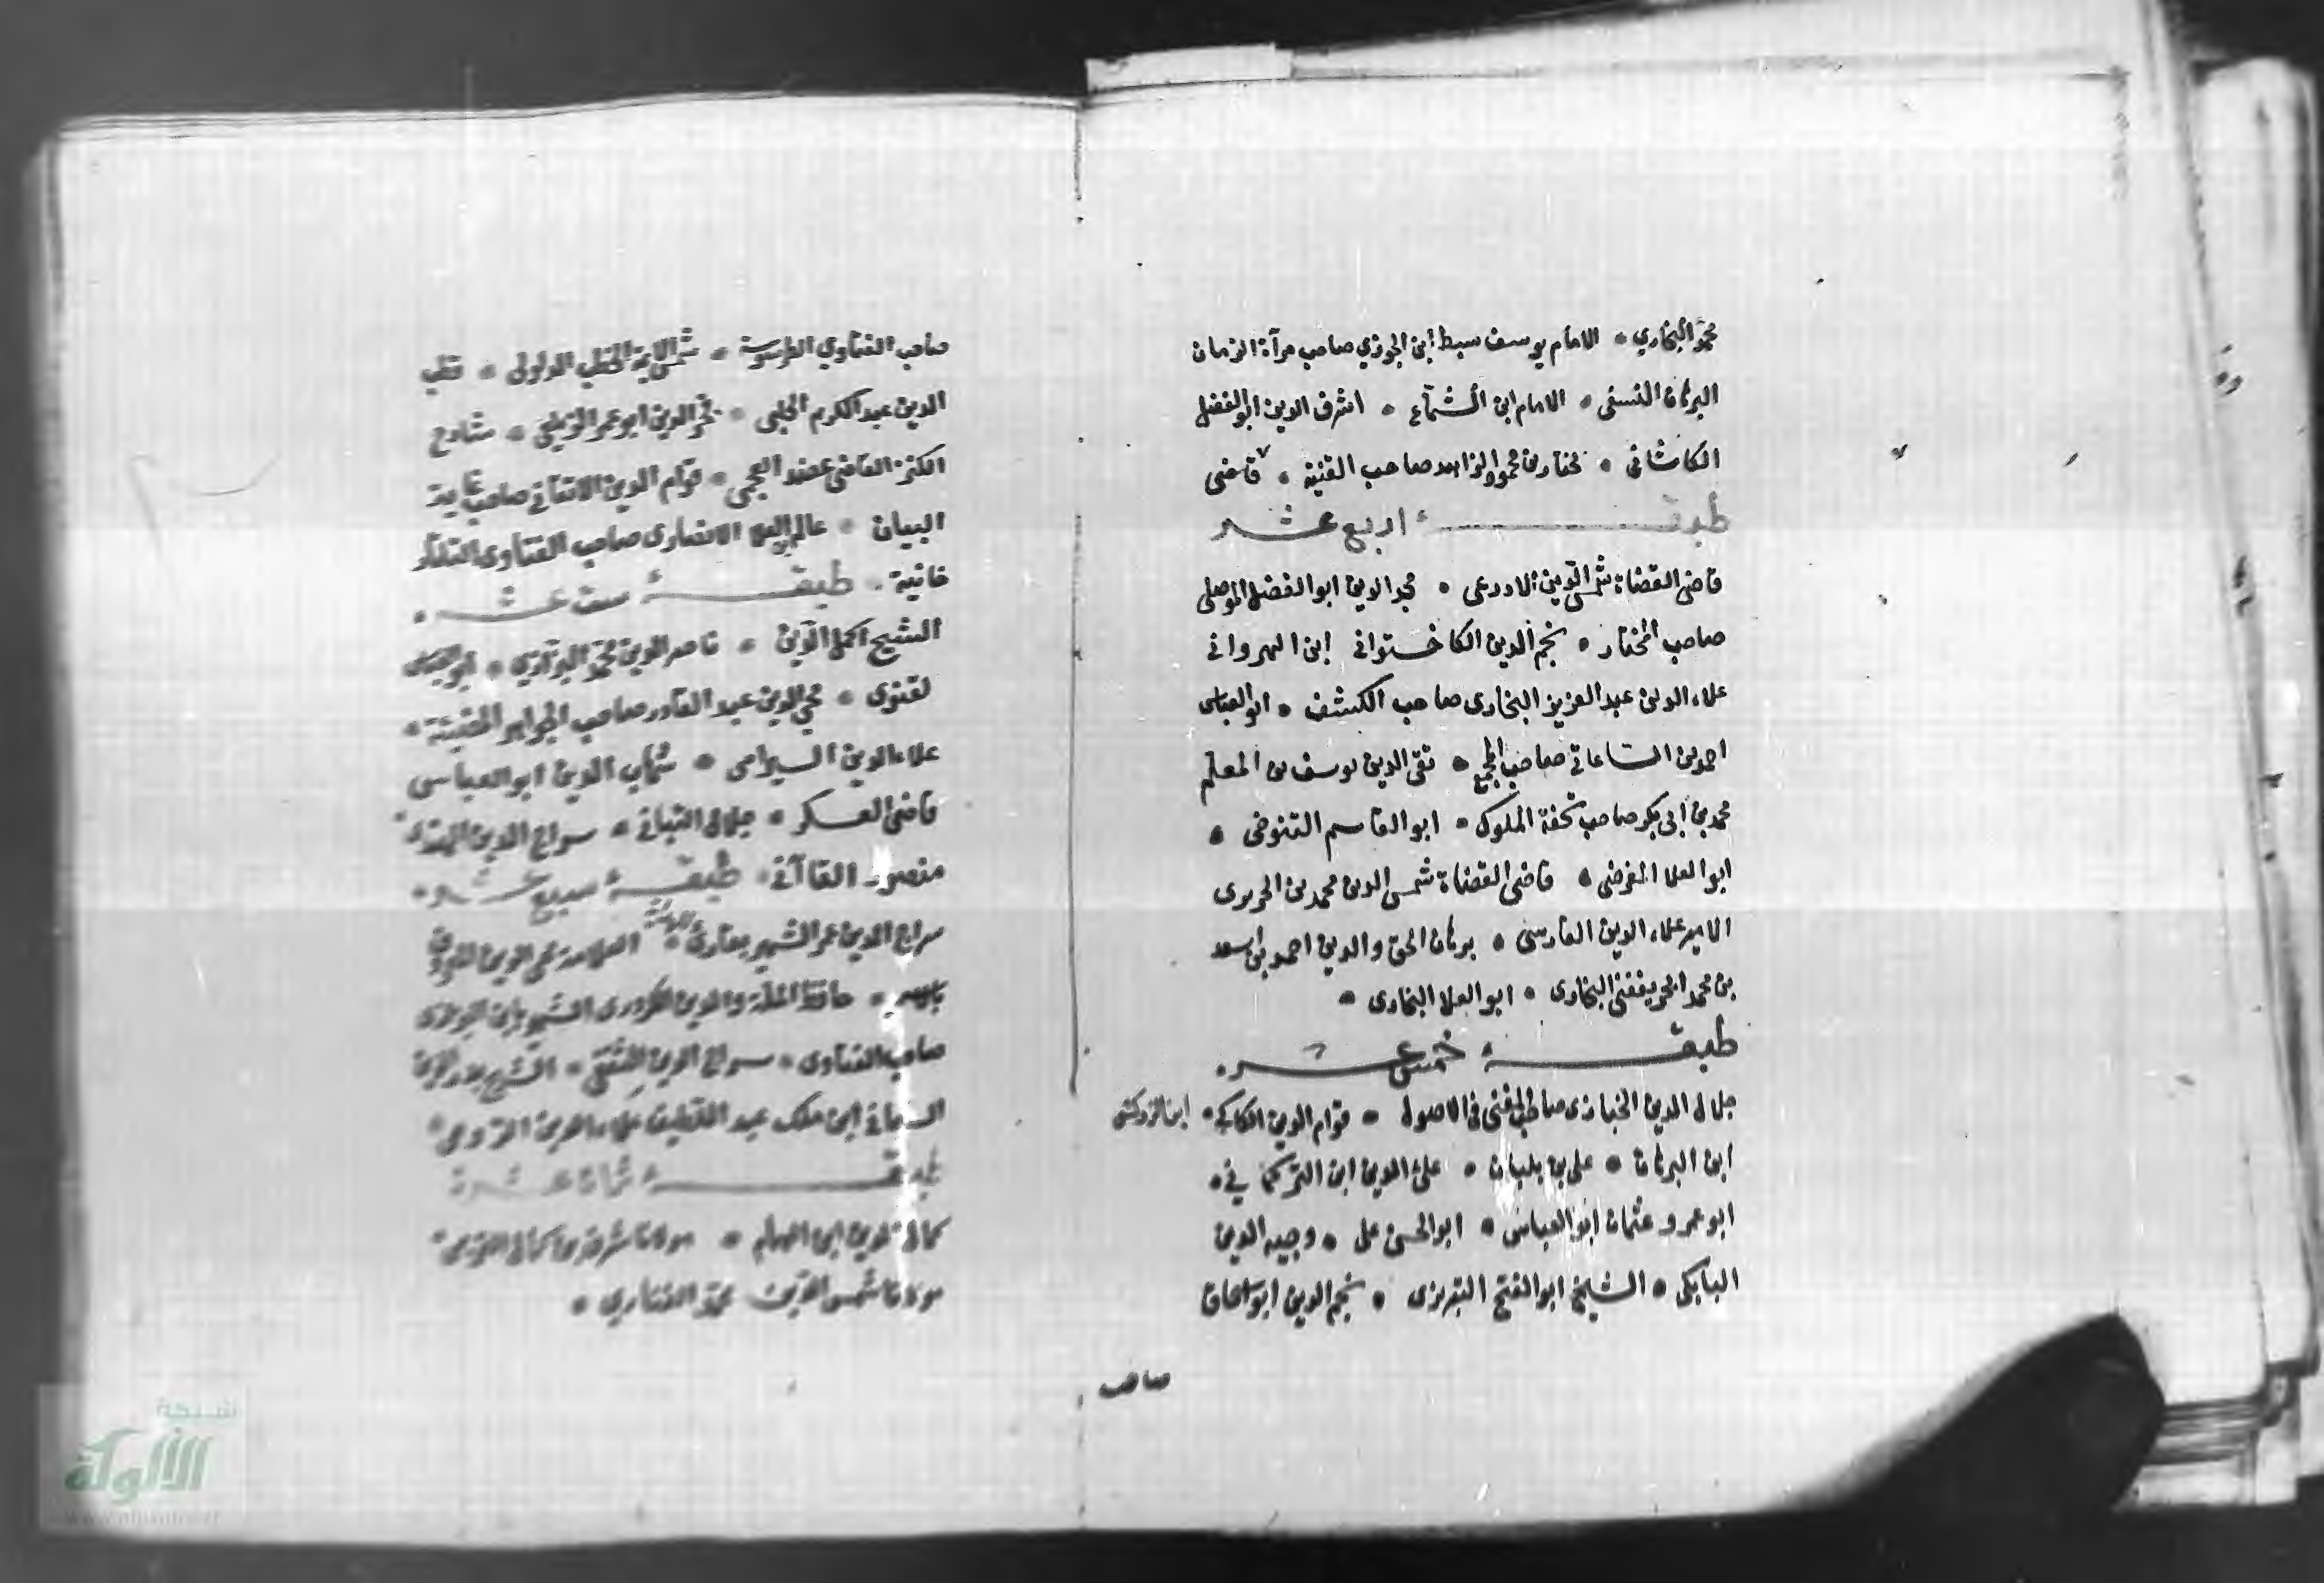 محمد البخاري • الامام يوسف سبط ابن الجوزي صاحب مرآة الزمان
البرهان النسفى • الامام ابن الشماع • اشرف الدين ابو الفضل
الكاشانى • مختار بن محمود الزاهد صاحب القنية • قاضى
طبقة اربع عشر
قاضى القضاة شمس الدين الاذرعى • مجد الدين ابو الفضل الموصلى
صاحب المختار • نجم الدين الكاخستوانى ابن النهروانى
علاء الدين عبد العزيز البخارى صاحب الكشف • ابو العباس
احمد بن الساعاتى صاحب المجمع • تقى الدين يوسف بن المعلم
محمد بن ابى بكر صاحب تحفة الملوك • ابو القاسم التنوخى •
ابو العلا الفرضى • قاضى القضاة شمس الدين محمد بن الحريرى
الامير علاء الدين الفارسى • برهان الحق والدين احمد بن اسعد
بن محمد الخريفغنى البخارى • ابو العلا البخارى •
طبقة خمس عشر •
جلال الدين الخبازى صاحب المغنى فى الاصول • قوام الدين الكاكى •
ابن البرهان • على بن بلبان • علاء الدين ابن التركمانى •
ابو عمرو عثمان ابو العباس • ابو الحسن على • وجيه الدين
البابكى • الشيخ ابو الفتح التبريزى • نجم الدين ابو اسحاق
صاحب
صاحب الفتاوي الطرسوسية • شمس الائمة الخطب • قطب
الدين عبد الكريم الحلبى • فخر الدين ابو عمر الزيلعى • شارح
الكنز القاضى عضد العجمى • قوام الدين الاتقانى صاحب غاية
البيان • عالم بن العلا الانصارى صاحب الفتاوى التاتار
خانية • طبقة ست عشر •
الشيخ اكمل الدين • ناصر الدين محمد •
القنوى • محي الدين عبد القادر صاحب الجواهر المضيئة •
علاء الدين السيرامى • شهاب الدين ابو العباسى
قاضى العسكر • جلال التبانى • سراج الدين الهندى •
منصور القاآنى • طبقة سبع عشر •
سراج الدين عمر الشهير بقارئ الهداية • العلامة
• حافظ الملة والدين الكردرى الشهير بابن البزازى
صاحب الفتاوى • سراج الدين الثقفى • الشيخ بدر الدين
ابن ملك عبد اللطيف علاء الدين الرومى •
طبقة ثمان عشر •
كمال الدين ابن الهمام • مولانا شرف بن كمال القريمى •
مولانا شمس الدين محمد الفنارى •